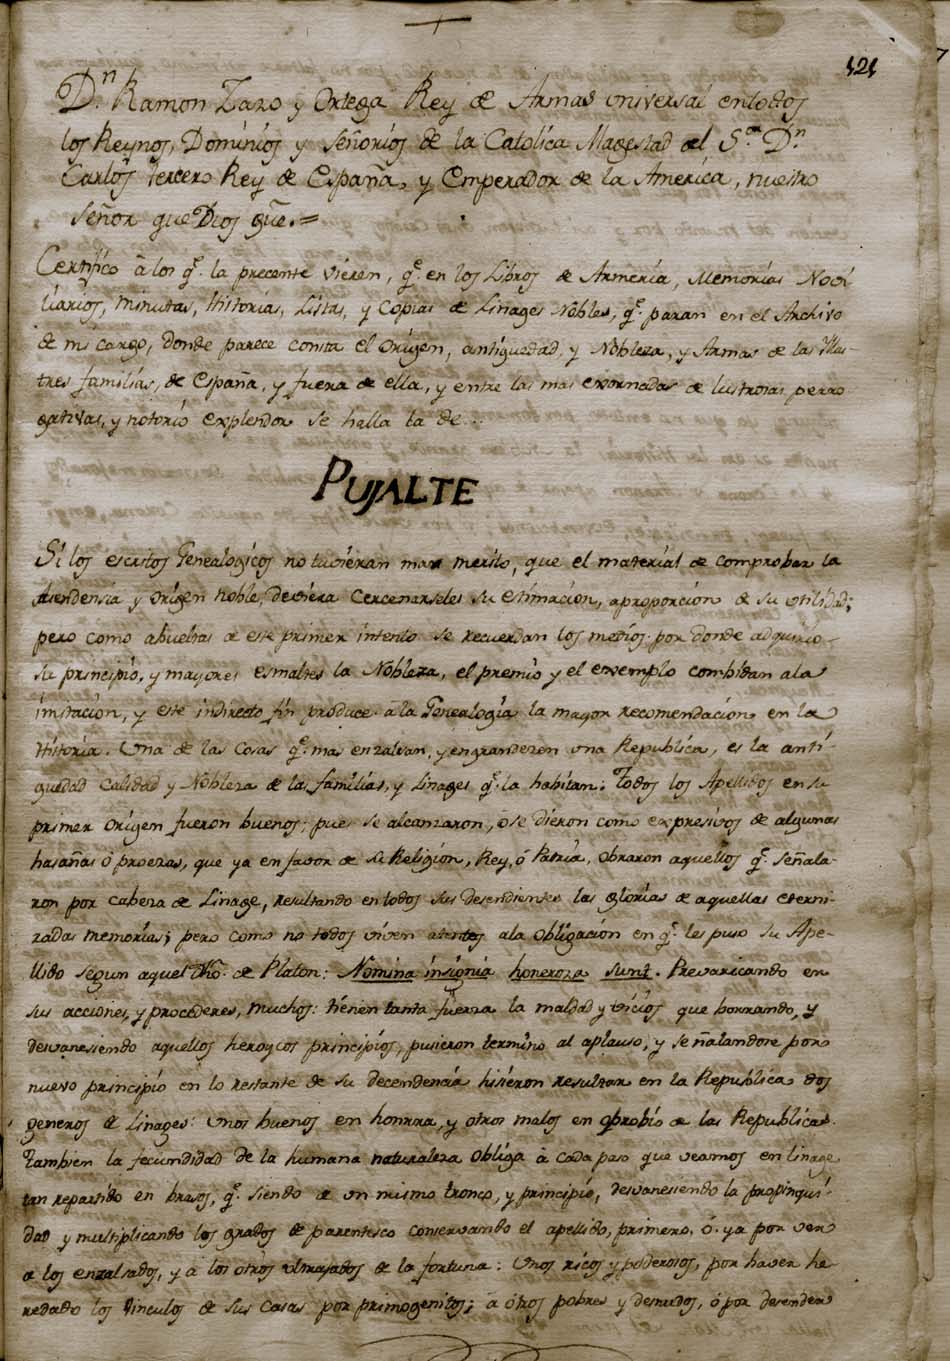 121
Dn. Ramon Zazo y Ortega Rey de Armas universal en todos
los Reynos, Dominios y Señorios de la Catolica Magestad del Sor. Dn.
Carlos tercero Rey de España, y Emperador de la America, nuestro
señor que Dios gûe.=
Certifico â los q.e la precente vieren, q.e en los Libros de Armeria, Memorias Novi
liarios, minutas, Historias, Listas, y Copias de Linages Nobles, q.e paran en el Archivo
de mi cargo, donde parece consta el Origen, antiguedad, y Nobleza, y Armas de las Illus
tres familias, de España, y fuera de ella, y entre las mas exornadas de lustrosas perro
gativas, y notorio explendor se halla la de...
PUJALTE
Si los escritos Genealogicos no tuvieran mas merito, que el material de comprobar la
asendensia y origen noble, deviera cercenarseles su estimacion, aproporcion de su utilidad;
pero como abueltas de este primer intento se recuerdan los medios por donde adquirio
su principio, y mayores esmaltes la Nobleza, el premio y el exemplo combidan ala
imitacion, y este indirecto fin produce a la Genealogia la mayor recomendacion en la
Historia. Una de las Cosas q.e mas enzalsan, y engrandezen una Republica, es la anti-
guedad Calidad y Nobleza de las familias, y Linages q.e la habitan: Todos los Apellidos en su
primer origen fueron buenos; pues se alcanzaron, o se dieron como expresivos de algunas
hasañas ó proezas, que ya en favor de la Religion, Rey, ó Patria, obraron aquellos q.e señala-
ron por cabeza de Linage, resultando en todos sus desendientes las glorias de aquellas eterni-
zadas memorias; pero como no todos viven atentos ala obligacion en q.e les puso su Ape-
llido segun aquel Dho. de Platon: Nomina insignia honeroza sunt. Prevaricando en
sus acciones, y procederes, muchos: tienen tanta fuerza la maldad y vicios que borrando, y
desvanesiendo aquellos heroycos principios, pusieron termino al aplauso, y señalandose por
nuevo principio en lo restante de su decendencia hisieron resultar en la Republica dos
generos de Linages: unos buenos en honrra, y otros malos en oprobio de las Republicas.
Tambien la fecundidad de la humana naturaleza obliga â cada paso que veamos en linage
tan repartido en brasos, q.e siendo de un mismo tronco, y principio, desvanesiendo la propinqui-
dad y multiplicando los grados de parentesco conservando el apellido, primero, ó ya por ver
a los enzalsados, y a los otros ultrajados de la fortuna: Unos ricos y poderosos, por haver he
redado los vinculos de sus Casas por primogenitos; â otros pobres y desnudos, ó por desender